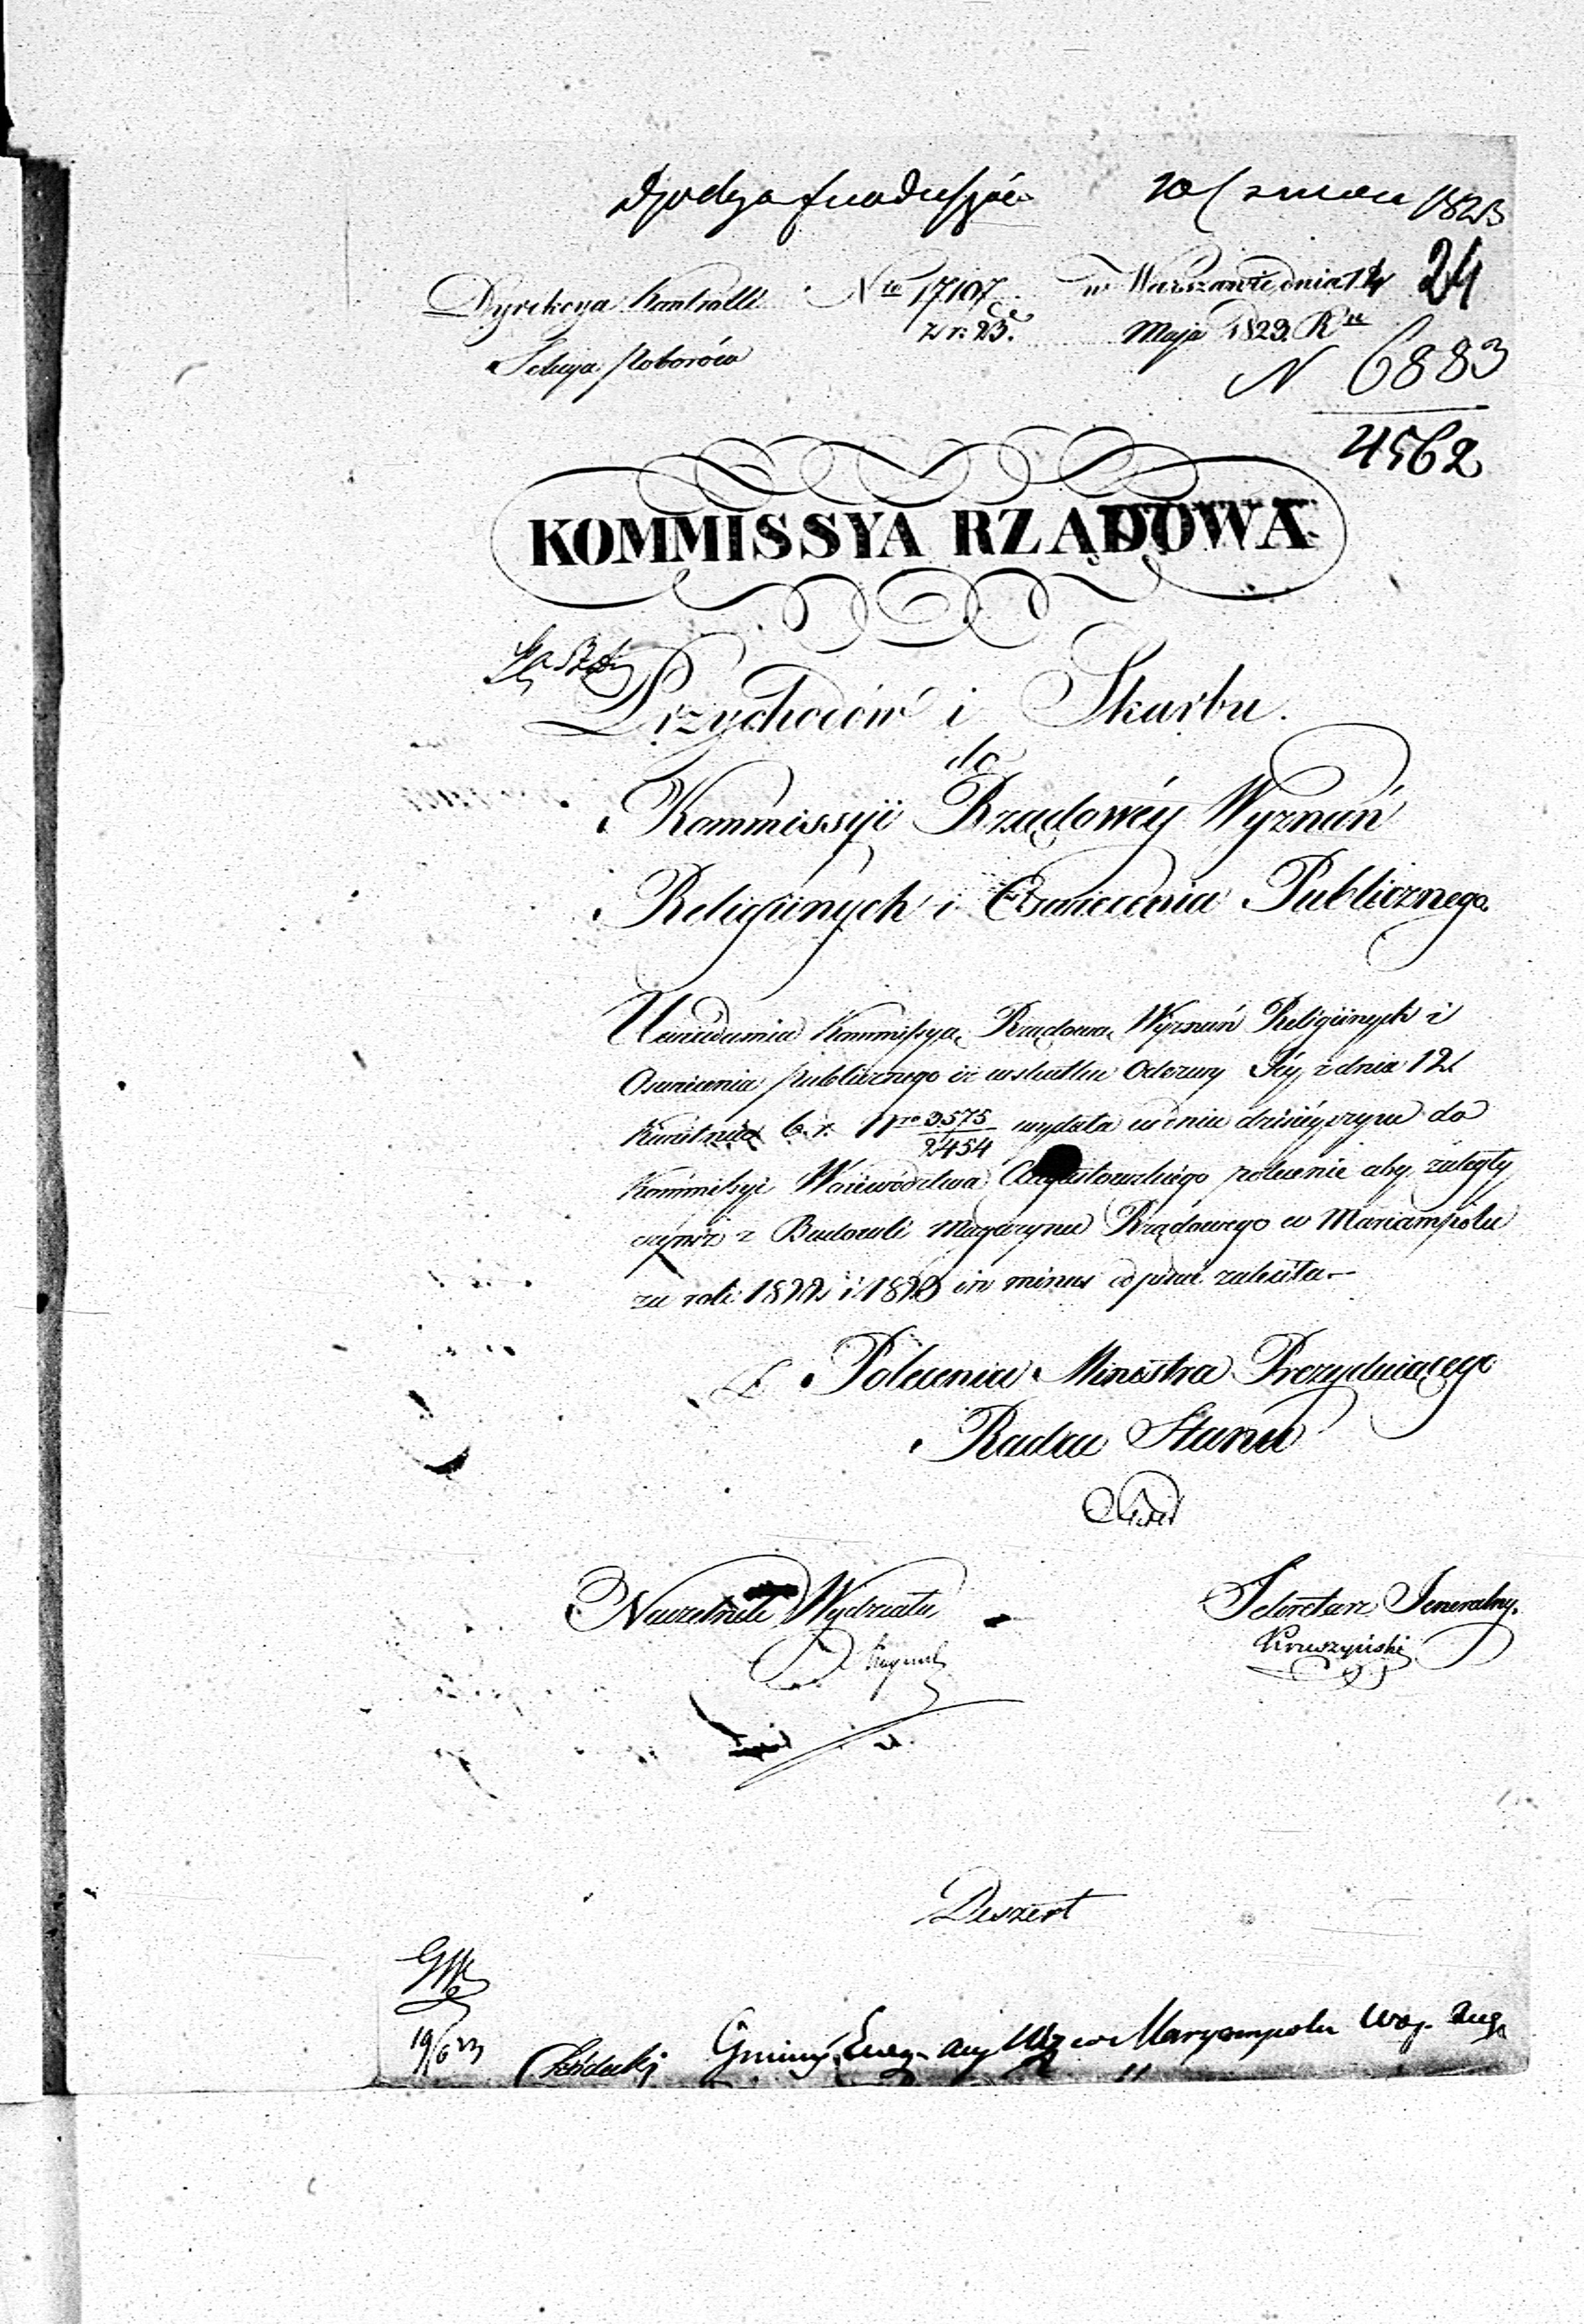 1823
Dyrekcya Kontrolli Nro 17107 w Warszawie dnia 14 24
z r. 23. Maja 1823 R
Sekcya Poborów
N 6883
4562
KOMMISSYA RZĄDOWA
Przychodów i Skarbu.
do
Kommissyi Rządowéy Wyznań
Religiinych i Oświecenia Publicznego.
Uwiadamia Kommissyą Rządową Wyznań Religiinych i
Oświecenia publicznego iż wskutku Odezwy Jéy z dnia 12
Kwietnia b. r. Nro 3575/2454 wydała w dniu dzisiéyszym do
Kommissyi Woiewództwa Augustowskiego polecenie aby zaległy
czynsz z Budowli Magazynu Rządowego w Mariampolu
za rok 1822 i 1823 in minus
Z Polecenia Ministra Prezyduiącego
Radca Stanu
Naczelnik Wydziału Sekretarz Jeneralny.
Kruszyński
Deszert
w Maryampolu Woj. Aug